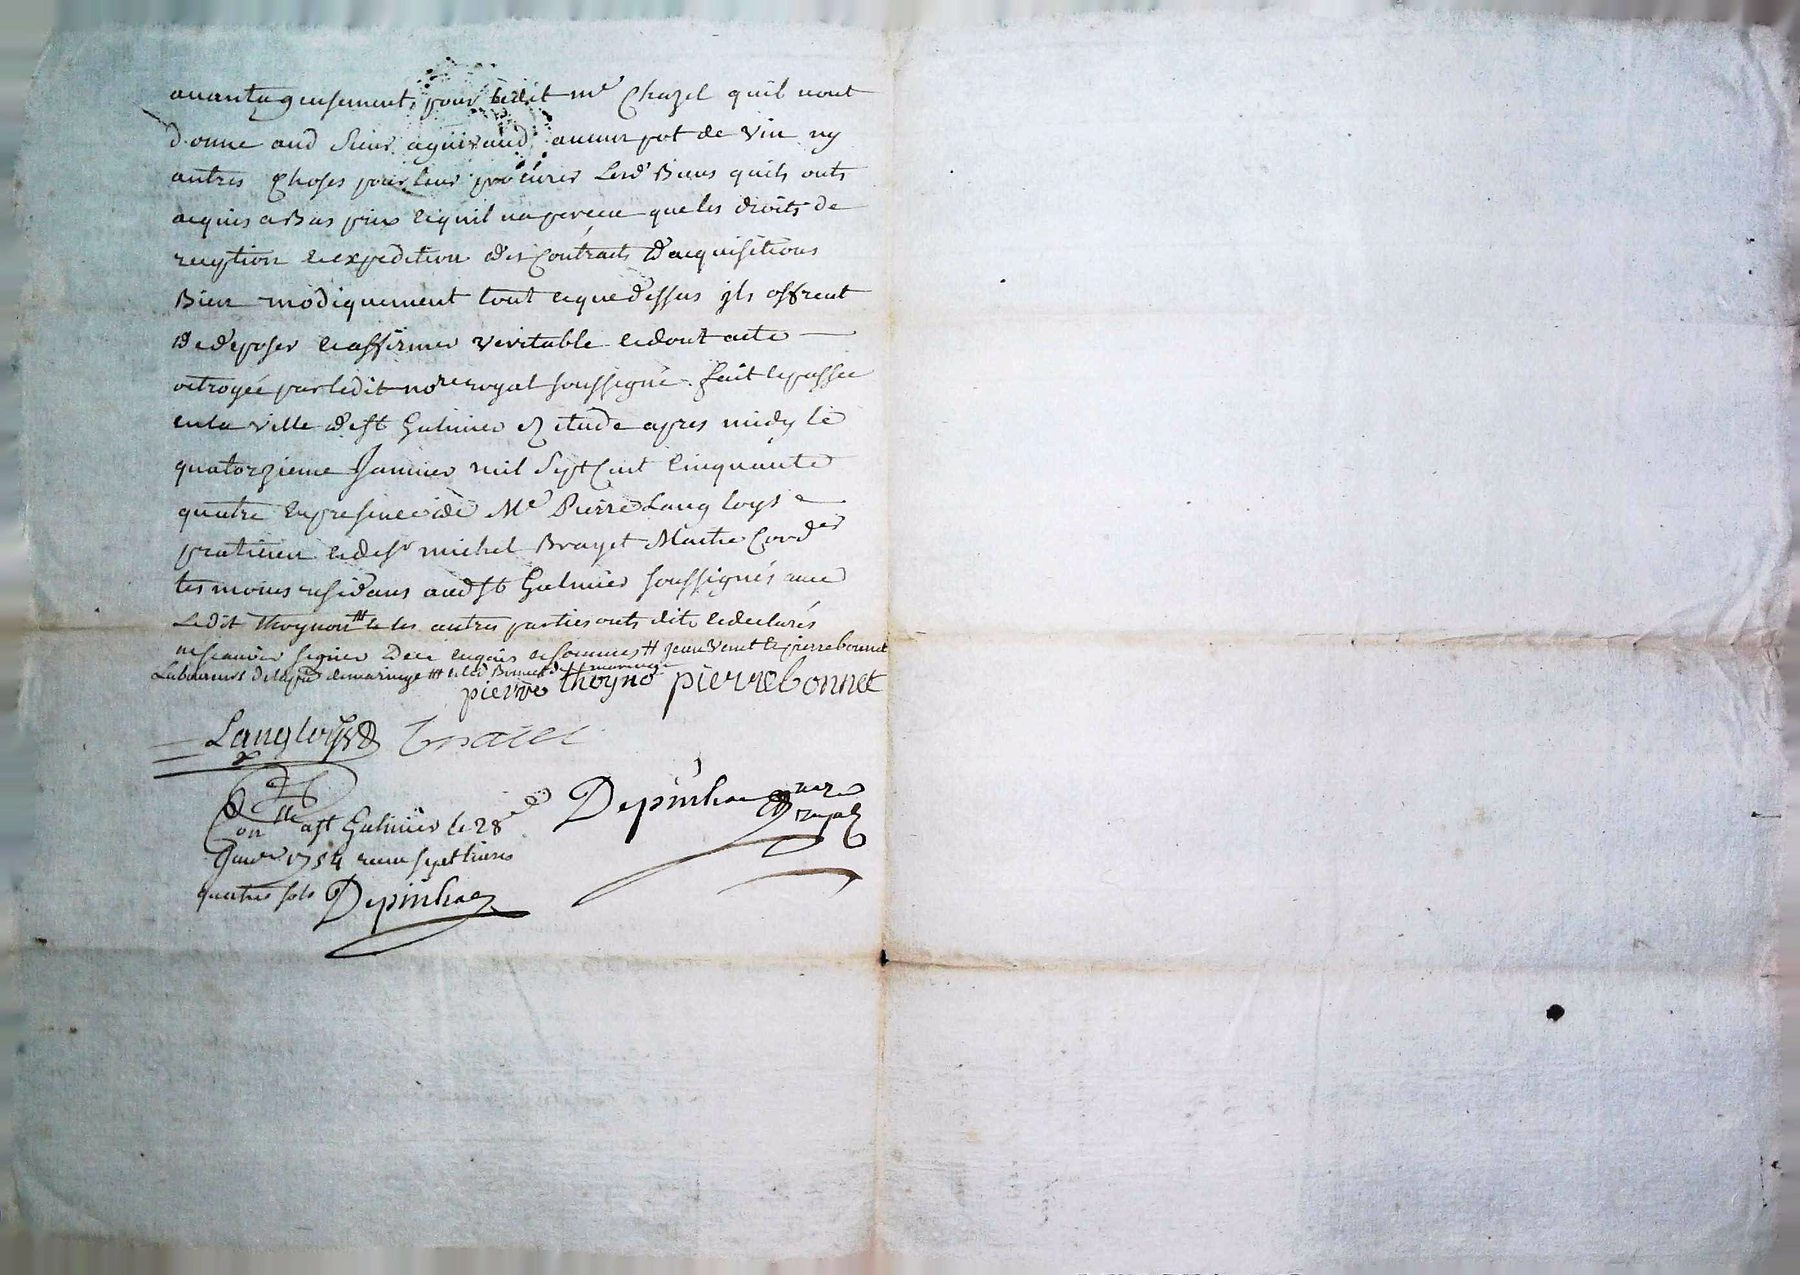 avantageusement, pour ledit mr Chazel quil nont
donne aud Sieur aguiraud aucun pot de vin ny
autres choses pour leur procurer Lesd Biens quils onts
acquis a Bas prix et quil na perceu que les droits de
reception et expedition des Contracts d'acquisitions
Bien modiquement tout ce que dessus jls offrent
de deposer et affirmer veritable et dont acte
octroyée par ledit nore royal soussigné. fait et passée
en la ville de st Galmier etude apres midy le
quatorzieme Janvier mil Sept Cent Cinquante
quatre en presence de Me Pierre Langloys
praticien et de sr michel Brayet Maitre Corder
temoins residans aud st Galmier soussignés avec
Ledit Thoynon # et les autres parties onts dit et declarés
ne scavoir signer De ce enquis et sommes # jean Venet et pierre bonnet
Laboureurs de la psse de maringe ## et led Bonnet de maringe
pierre thoyno pierre bonnet
Langloys Braiet
Con lle a st Galmier le 28e
Depinhac nore royal
Janvr 1754 receu sept livres
quatre sols Depinhac